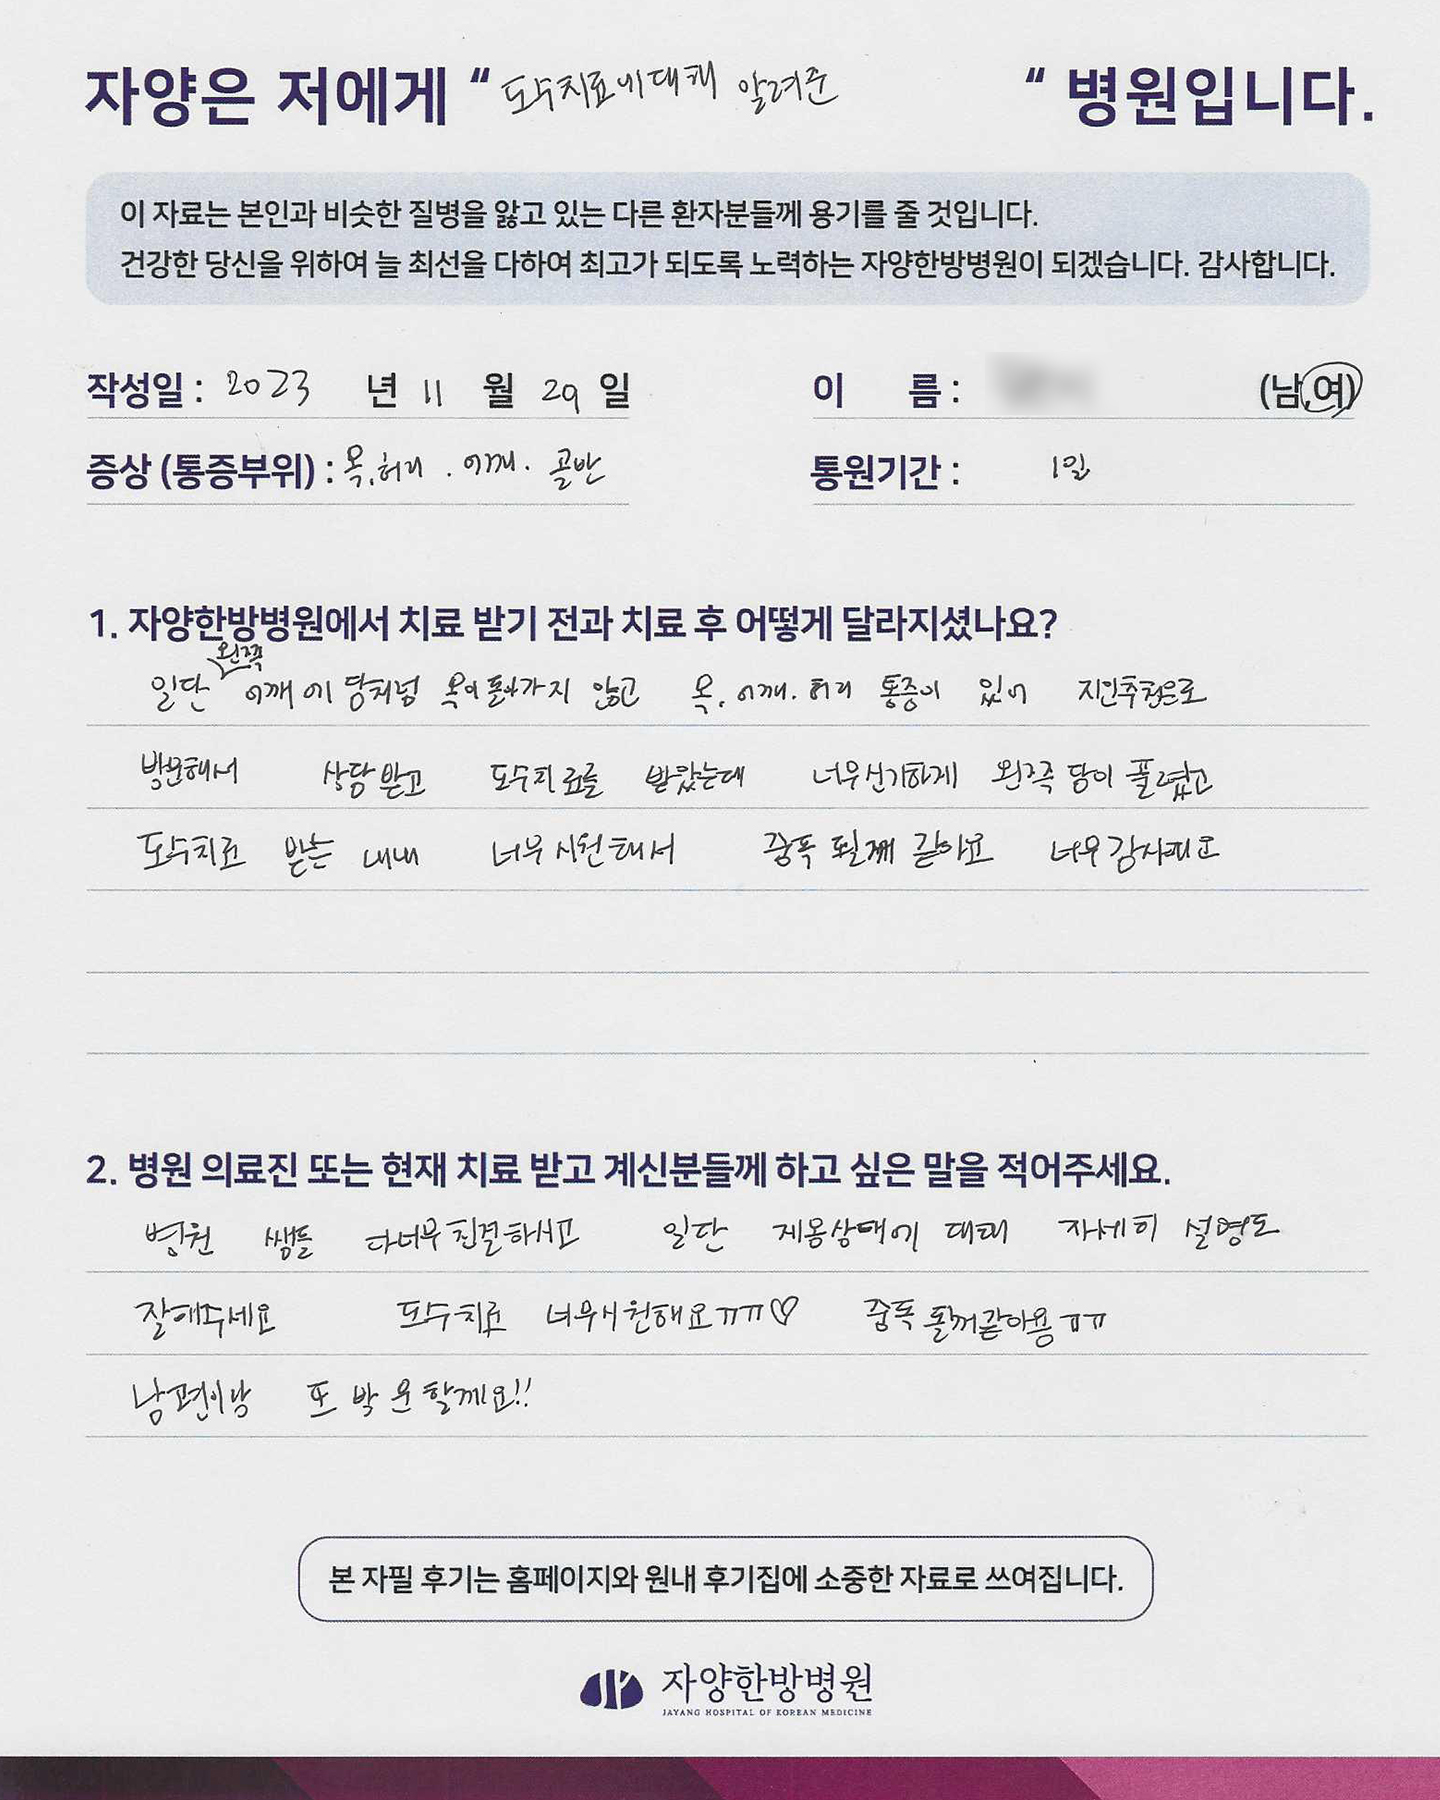 자양은 저에게 “ 도수치료에대해 알려준 “ 병원입니다.
이 자료는 본인과 비슷한 질병을 앓고 있는 다른 환자분들께 용기를 줄 것입니다.
건강한 당신을 위하여 늘 최선을 다하여 최고가 되도록 노력하는 자양한방병원이 되겠습니다. 감사합니다.
작성일 : 2023 년 11 월 29 일 이 름 : (남,여)
증상 (통증부위) : 목.허리 . 어깨. 골반 통원기간 : 1일
1. 자양한방병원에서 치료 받기 전과 치료 후 어떻게 달라지셨나요?
일단 왼쪽 어깨에 담처럼 목이돌아가지 않고 목. 어깨. 허리 통증이 있어 지인추천으로
방문해서 상담받고 도수치료를 받았는데 너무신기하게 왼쪽 담이 풀렸고
도수치료 받는 내내 너무시원해서 중독 될꺼 같아요 너무감사해요
2. 병원 의료진 또는 현재 치료 받고 계신분들께 하고 싶은 말을 적어주세요.
병원 쌤들 다너무친절하시고 일단 제몸상태에 대해 자세히 설명도
잘해주세요 도수치료 너무시원해요ㅠㅠ♡ 중독 될꺼같아용ㅠㅠ
남편이랑 또 방문할께요!!
본 자필 후기는 홈페이지와 원내 후기집에 소중한 자료로 쓰여집니다.
자양한방병원
JAYANG HOSPITAL OF KOREAN MEDICINE